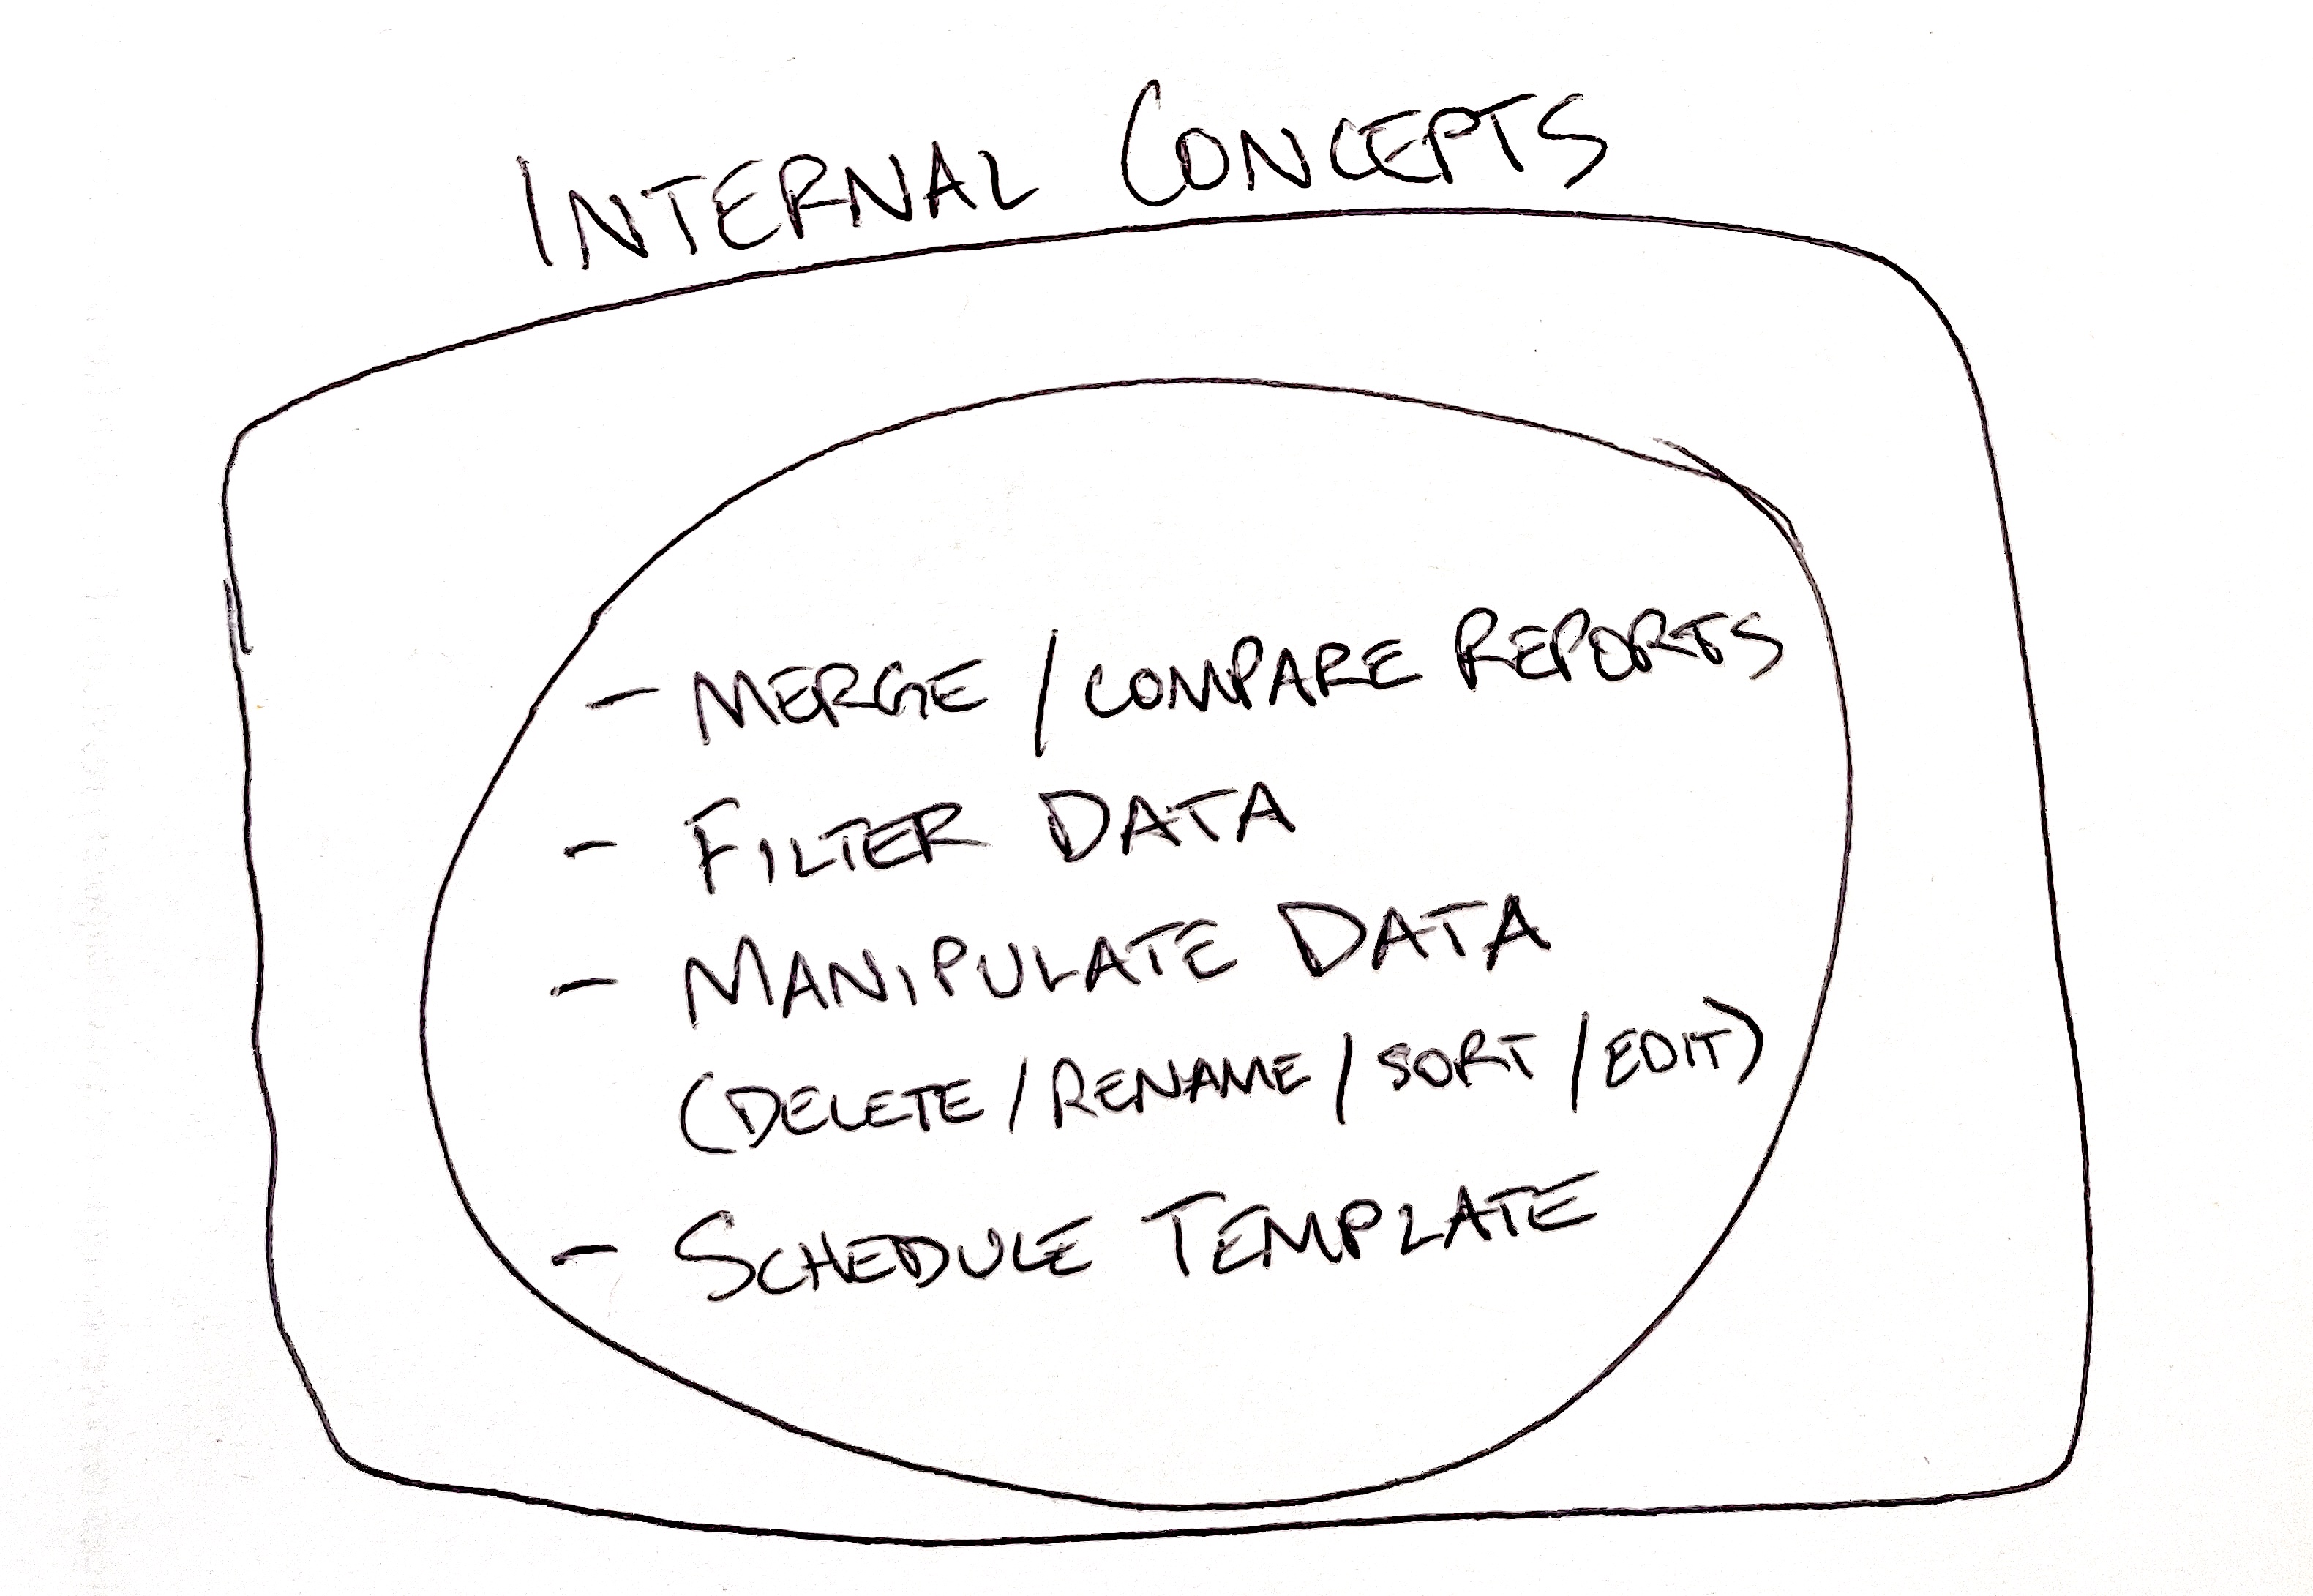 INTERNAL CONCEPTS
- MERGE / COMPARE REPORTS
- FILTER DATA
- MANIPULATE DATA
(DELETE / RENAME / SORT / EDIT)
- SCHEDULE TEMPLATE